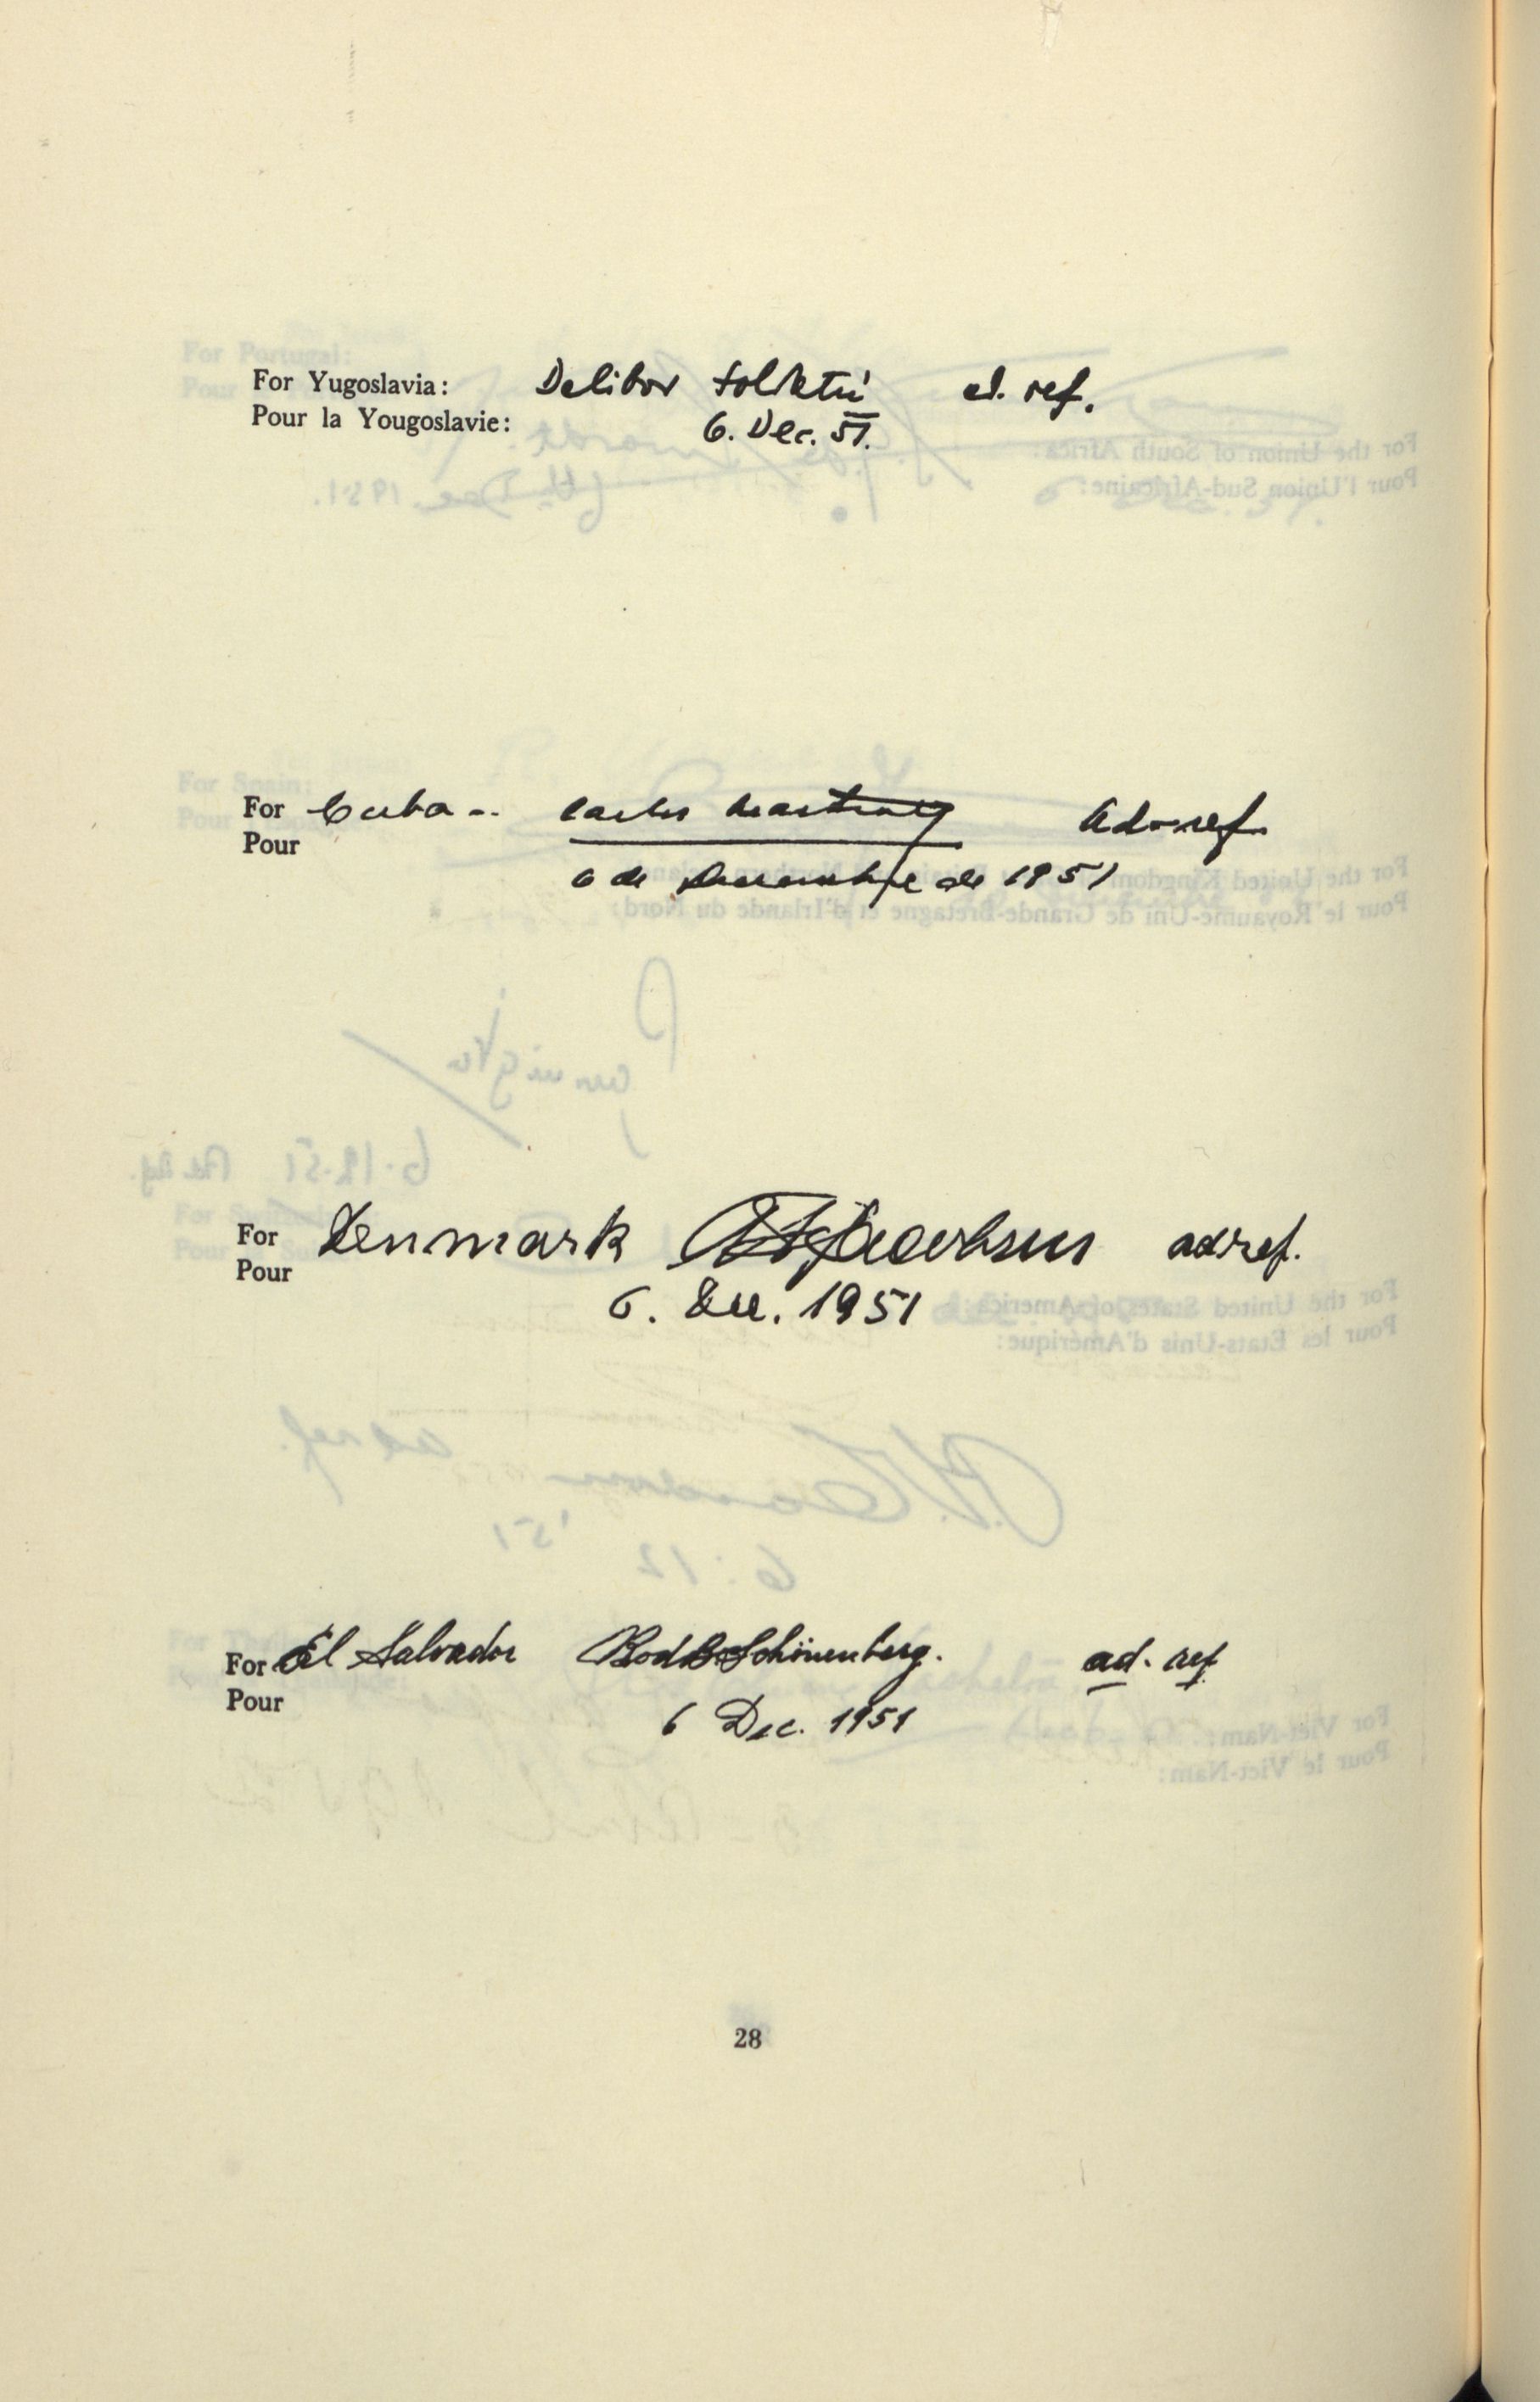 For Yugoslavia: Dalibor Soldatić ad. ref.
Pour la Yougoslavie: 6. Dec. 51.
For Cuba -- Carlos ad-ref.
Pour
6 de Diciembre de 1951
For Denmark Jacobsen ad ref.
Pour
6. Dec. 1951
For El Salvador Schönenberg. ad. ref
Pour
6 Dec. 1951
28